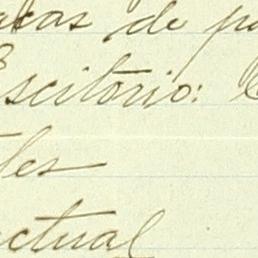 acas de pa
Escritorio:
les
ctual